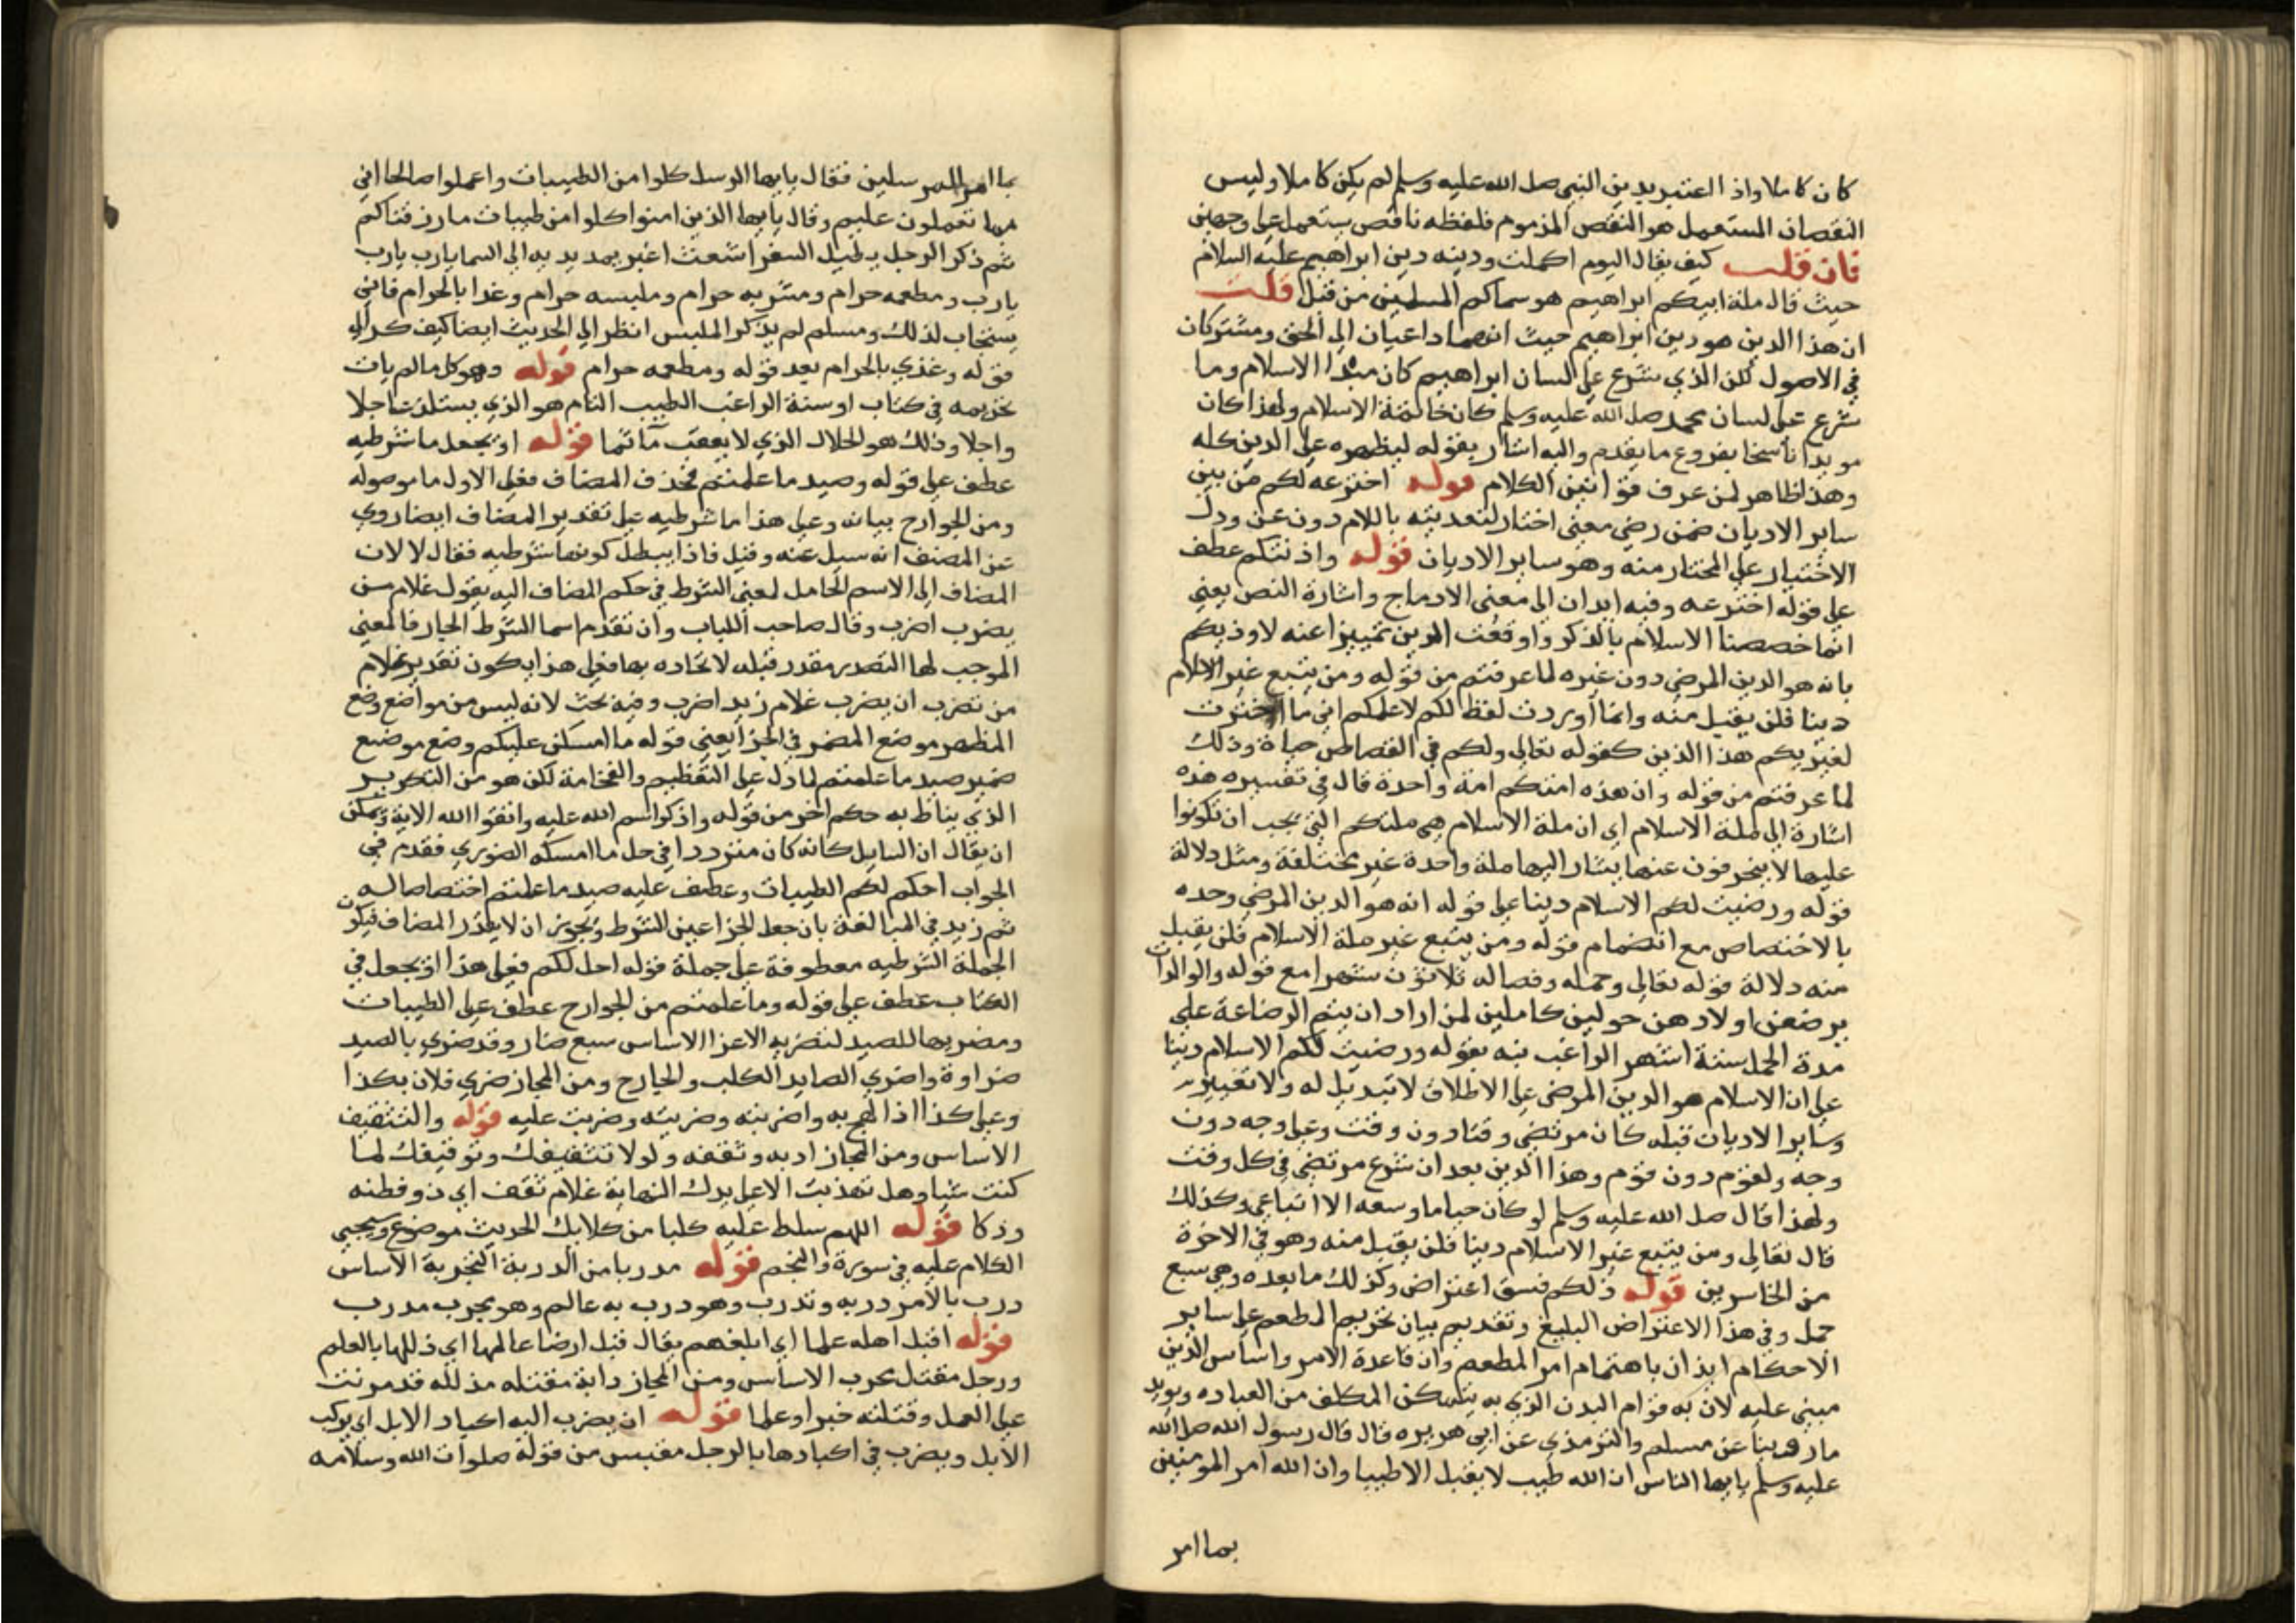 كان كاملا واذا اعتبر بدين النبي صلى الله عليه وسلم لم يكن كاملا وليس
النقصان المستعمل هو النقص المذموم فلفظه ناقص يستعمل على وجهين
فان قلت كيف يقال اليوم اكملت ودينه دين ابراهيم عليه السلام
حيث قال ملة ابيكم ابراهيم هو سماكم المسلمين من قبل قلت
ان هذا الدين هو دين ابراهيم حيث انهما داعيان الى الحق ومشتركان
في الاصول لكن الذي شرع على لسان ابراهيم كان مبدا الاسلام وما
شرع على لسان محمد صلى الله عليه وسلم كان خاتمة الاسلام ولهذا كان
مويدا ناسخا بفروع ما يقدم واليه اشار بقوله ليظهره على الدين كله
وهذا ظاهر لمن عرف قوانين الكلام قوله اخترعه لكم من بين
ساير الاديان ضمن رضي معنى اختار لتعديته باللام دون عن ودل
الاختيار علي المختار منه وهو ساير الاديان قوله واذنتكم عطف
علي قوله اخترعه وفيه ايدان الى معنى الادماج واشارة النص يعني
انما خصصنا الاسلام بالذكر واوقعت الدين تمييزا عنه لاوذيكم
بانه هو الدين المرضي دون غيره لما عرفتم من قوله ومن يتبع غير الاسلام
دينا فلن يقبل منه وانما اوردت لفظ لكم لاعلمكم اني ما اخترت
لغيريكم هذا الدين كقوله تعالي ولكم في القصاص حياة وذلك
لما عرفتم من قوله وان هذه امتكم امة واحدة قال في تفسيره هذه
اشارة الى ملة الاسلام اي ان ملة الاسلام هي ملتكم التي يجب ان تكونوا
عليها لا ينحرفون عنها يشار اليها ملة واحدة غير مختلفة ومثل دلالة
قوله ورضيت لكم الاسلام دينا على قوله انه هو الدين المرضي وحده
بالاختصاص مع انضمام قوله ومن يتبع غير ملة الاسلام فلن يقبل
منه دلالة قوله تعالي وحمله وفصاله ثلاثون شهرا مع قوله والوالدات
يرضعن اولادهن حولين كاملين لمن اراد ان يتم الرضاعة علي
مدة الحمل ستة اشهر الراغب نبه بقوله ورضيت لكم الاسلام دينا
علي ان الاسلام هو الدين المرضي علي الاطلاق لا تبديل له ولا تغيير
وساير الاديان قبله كان مرتضي وقتا دون وقت وعلى وجه دون
وجه ولقوم دون قوم وهذا الدين بعد ان شرع مرتضي في كل وقت
ولهذا قال صلى الله عليه وسلم لو كان حيا ما وسعه الا اتباعي وكذلك
قال تعالي ومن يتبع غير الاسلام دينا فلن يقبل منه وهو في الاخرة
من الخاسرين قوله ذلكم فسق اعتراض وكذلك ما بعده وهي سبع
جمل وفي هذا الاعتراض البليغ وتقديم بيان تحريم المطعم على ساير
الاحكام ايذان باهتمام امر المطعم وان قاعدة الامر واساس الدين
مبني عليه لان به قوام البدن الذي به يتمكن المكلف من العباده ويويد
ما روينا عن مسلم والترمذي عن ابي هريره قال قال رسول الله صلى الله
عليه وسلم يايها الناس ان الله طيب لا يقبل الا طيبا وان الله امر المومنين
بما امر
بما امر المرسلين فقال يايها الرسل كلوا من الطيبات واعملوا صالحا اني
بما تعملون عليم وقال يايها الذين امنوا كلوا من طيبات ما رزقناكم
ثم ذكر الرجل يطيل السفر اشعث اغبر يمد يديه الى السما يارب يارب
يارب ومطعمه حرام ومشربه حرام وملبسه حرام وغدا بالحرام فاني
يستجاب لذلك ومسلم لم يذكر الملبس انظر الي الحديث ايضا كيف كرر
قوله وغذي بالحرام بعد قوله ومطعمه حرام قوله وهو كل ما لم يات
تحريمه في كتاب او سنة الراغب الطيب التام هو الذي يستلذ عاجلا
واجلا وذلك هو الحلال الذي لا يعقب مآثما قوله او يجعل ما شرطيه
عطف علي قوله وصيد ما علمتم فحذف المضاف فعلي الاول ما موصوله
ومن الجوارح بيانه وعلي هذا ما شرطيه على تقدير المضاف ايضا روي
عن المصنف انه سيل عنه وقيل فاذا يبطل كونها شرطيه فقال لا لان
المضاف الى الاسم الحامل لمعنى الشرط في حكم المضاف اليه يقول غلام من
يضرب اضرب وقال صاحب اللباب وان تقدم اسما الشرط الجار فالمعني
الموجب لها التصدر مقدر قبله لاتحاده بها فعلي هذا يكون تقدير غلام
من تضرب ان يضرب غلام زيد اضرب وفيه بحث لانه ليس من مواضع وضع
المظهر موضع المضمر في الجزا يعني قوله ما امسكن عليكم وضع موضع
ضمير صيد ما علمتم لما دل على التعظيم والفخامة لكن هو من التكرير
الذي يناط به حكم اخر من قوله واذكروا اسم الله عليه واتقوا الله الاية ويمكن
ان يقال ان السايل كانه كان مترددا في حل ما امسكه الضوري فقدم في
الجواب احكم لكم الطيبات وعطف عليه صيد ما علمتم اختصاصا له
ثم زيد في المبالغة بان جعل الجزا عين الشرط ويجوز ان لا يقدر المضاف فيكون
الجملة الشرطيه معطوفة علي جملة قوله احل لكم فعلي هذا او يجعل في
الكتاب عطف علي قوله وما علمتم من الجوارح عطف على الطيبات
ومضريها للصيد لتضربه الاعزا الاساس سبع ضار وقد ضري بالصيد
ضراوة واضري الصايد الكلب والجارح ومن المجاز ضري فلان بكذا
وعلى كذا اذا لهج به واضريته وضريته وضريت عليه قوله والتثقيف
الاساس ومن المجاز ادبه وثقفه ولولا تثقيفك وتوقيفك لما
كنت شيا وهل تهذبت الا علي يدك النهاية غلام ثقف اي ذو فطنه
وذكا قوله اللهم سلط عليه كلبا من كلابك الحديث موضوع وسيجيي
الكلام عليه في سورة والنجم قوله مدربا من الدربة التجربة الاساس
درب بالامر دربه وتدرب وهو درب به عالم وهو مجرب مدرب
قوله اقتل اهله علما اي ابلغهم يقال قتل ارضا عالمها اي ذللها بالعلم
ورجل مقتل مجرب الاساس ومن المجاز دابة مقتله مذلله قد مرنت
علي العمل وقتلته خبرا وعلما قوله ان يضرب اليه اكباد الابل اي يركب
الابل ويضرب في اكبادها بالرجل مقتبس من قوله صلوات الله وسلامه